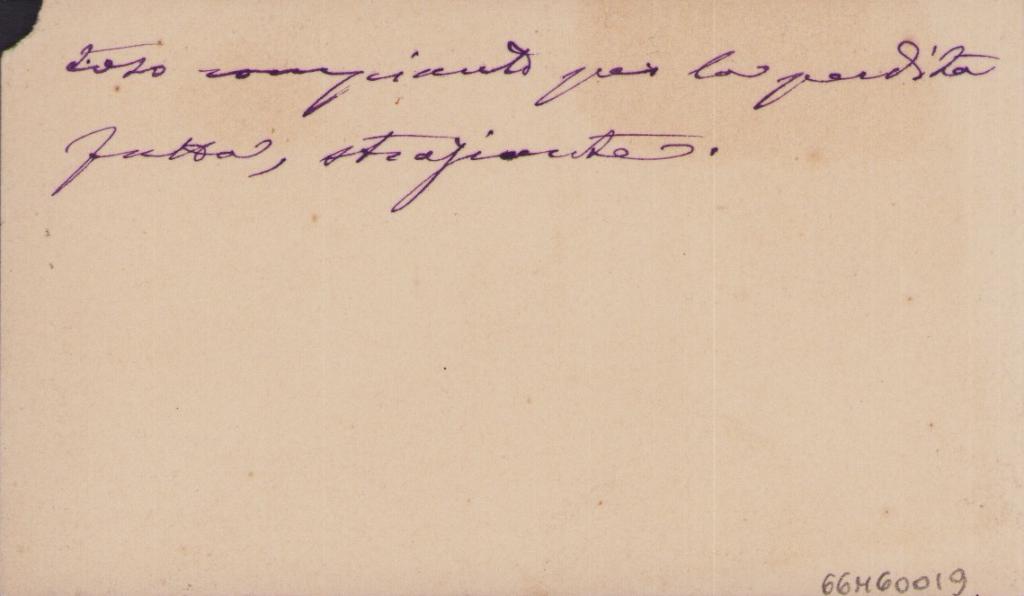 toso compianto per la perdita
fatta, straziante.
66M60019